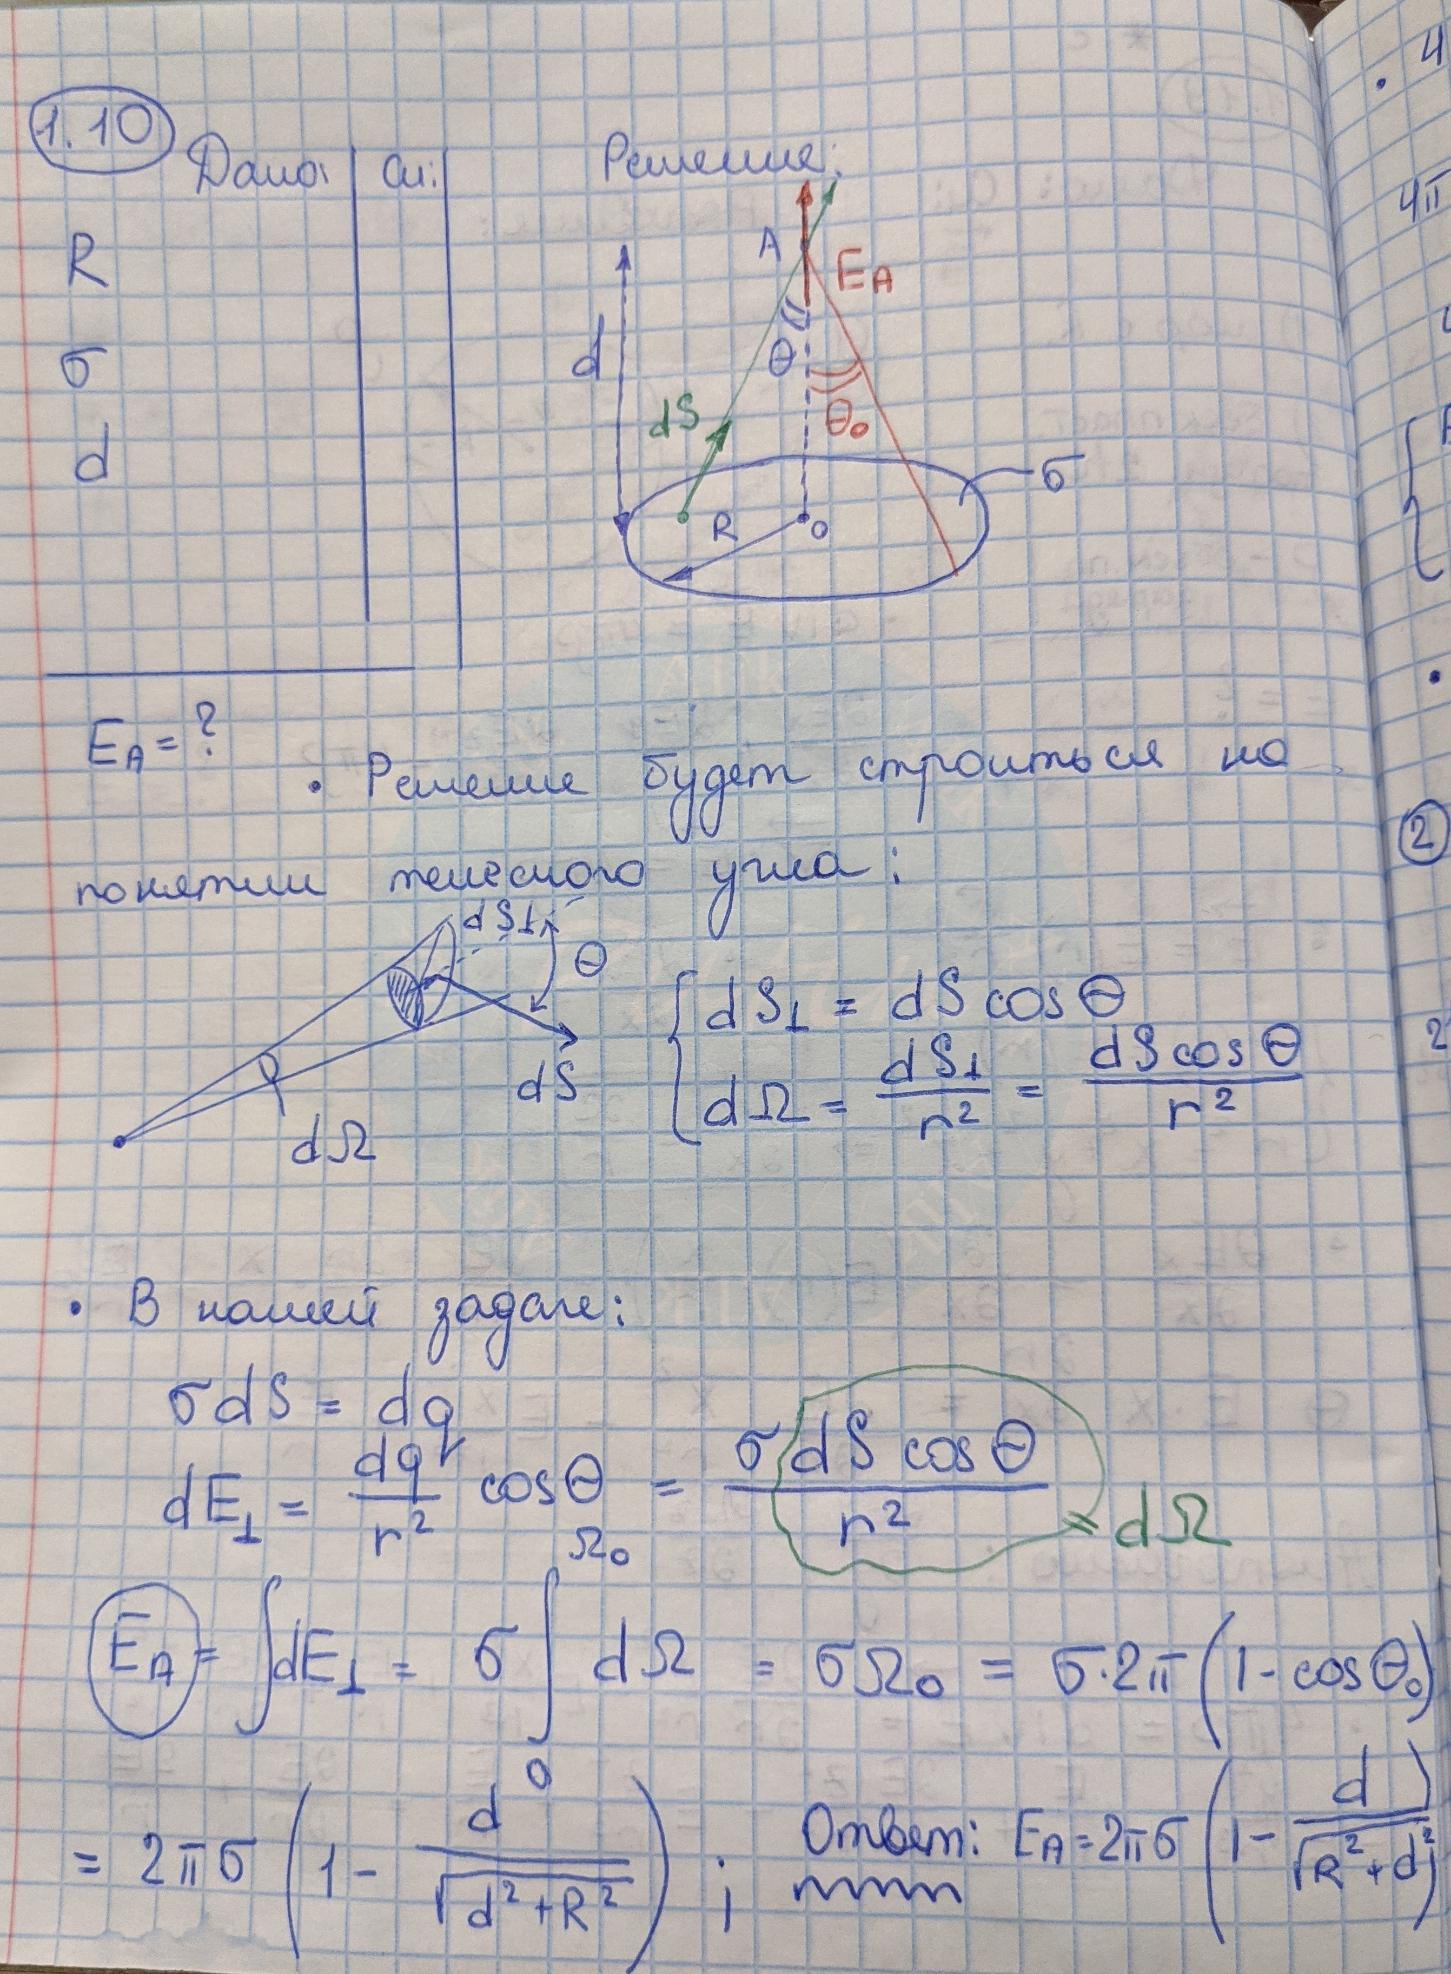 1.10
Дано: Си: Решение:
R
σ
d
A
E_A
d
θ
θ₀
dS
R
O
σ
E_A = ?
• Решение будет строиться на
понятии телесного угла:
dS⊥
θ
dS
dΩ
{ dS⊥ = dS cos θ
dΩ = dS⊥ / r² = dS cos θ / r²
• В нашей задаче:
σ dS = dq
dE⊥ = dq / r² cos θ = σ dS cos θ / r² dΩ
E_A = ∫ dE⊥ = σ ∫₀^Ω₀ dΩ = σΩ₀ = σ·2π (1 - cos θ₀)
= 2πσ (1 - d / √(d² + R²)) ; Ответ: E_A = 2πσ (1 - d / √(R² + d²))
• 4
4π
②
2